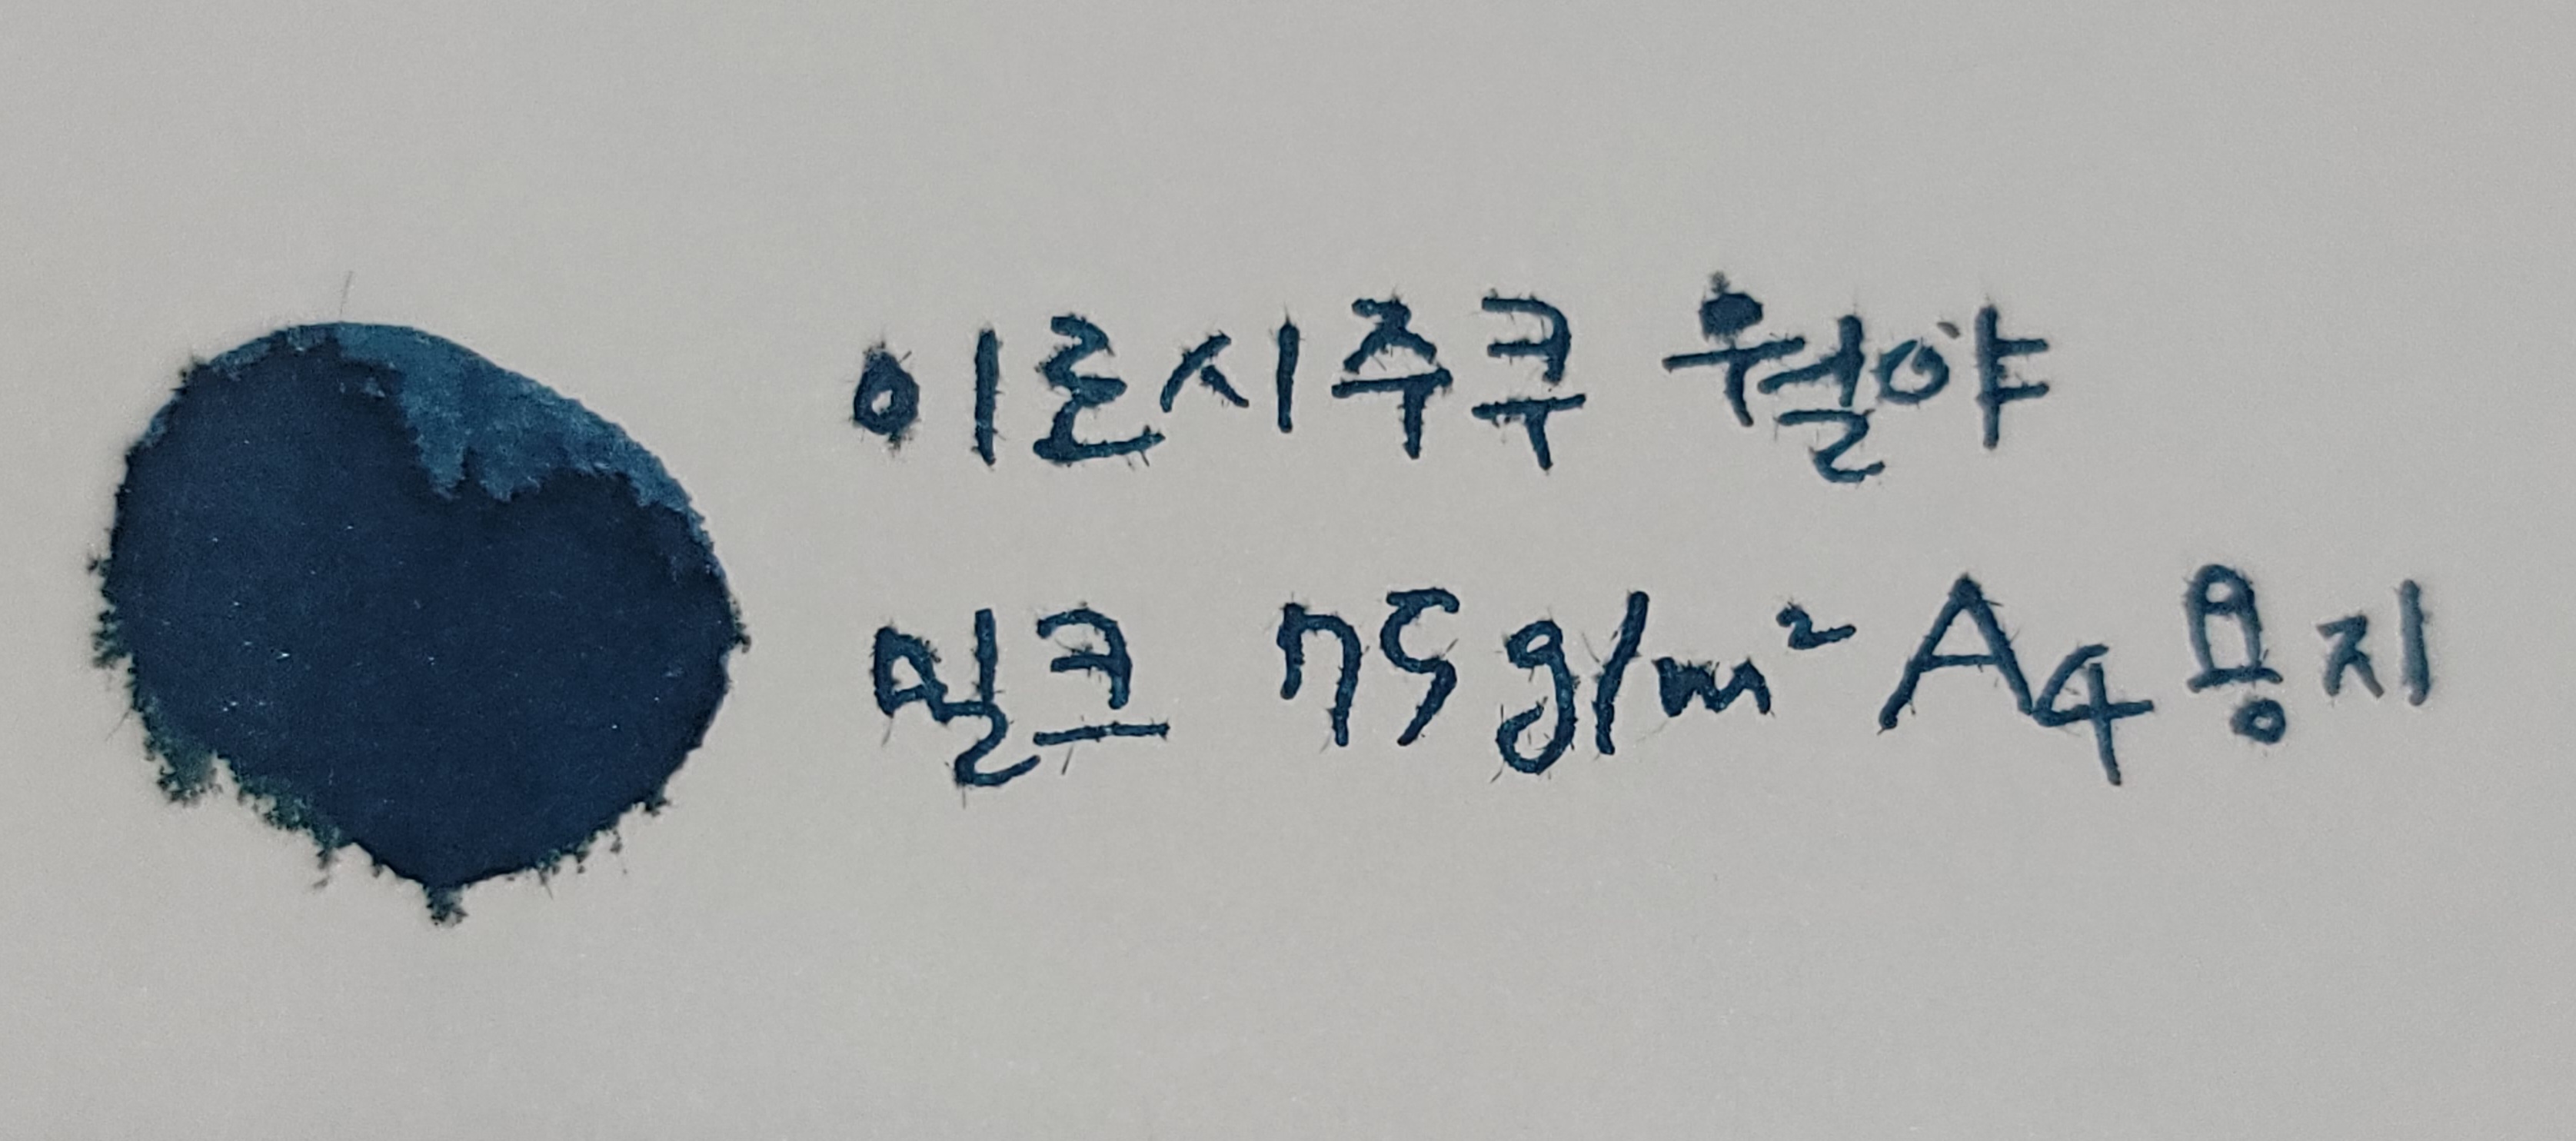 이로시주쿠 월야
밀크 75g/m² A4 용지